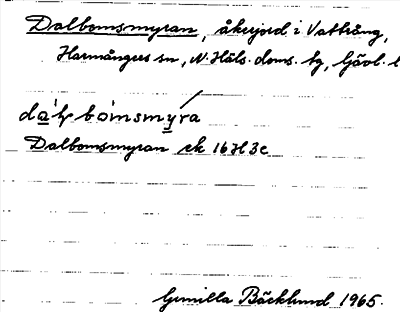 Dalbomsmyran, åkerjord i Vattrång,
Harmångers sn, N. Häls. doms. tg, Gävl. l
Dalbomsmyran ek 16H3c
Gunilla Bäcklund 1965.